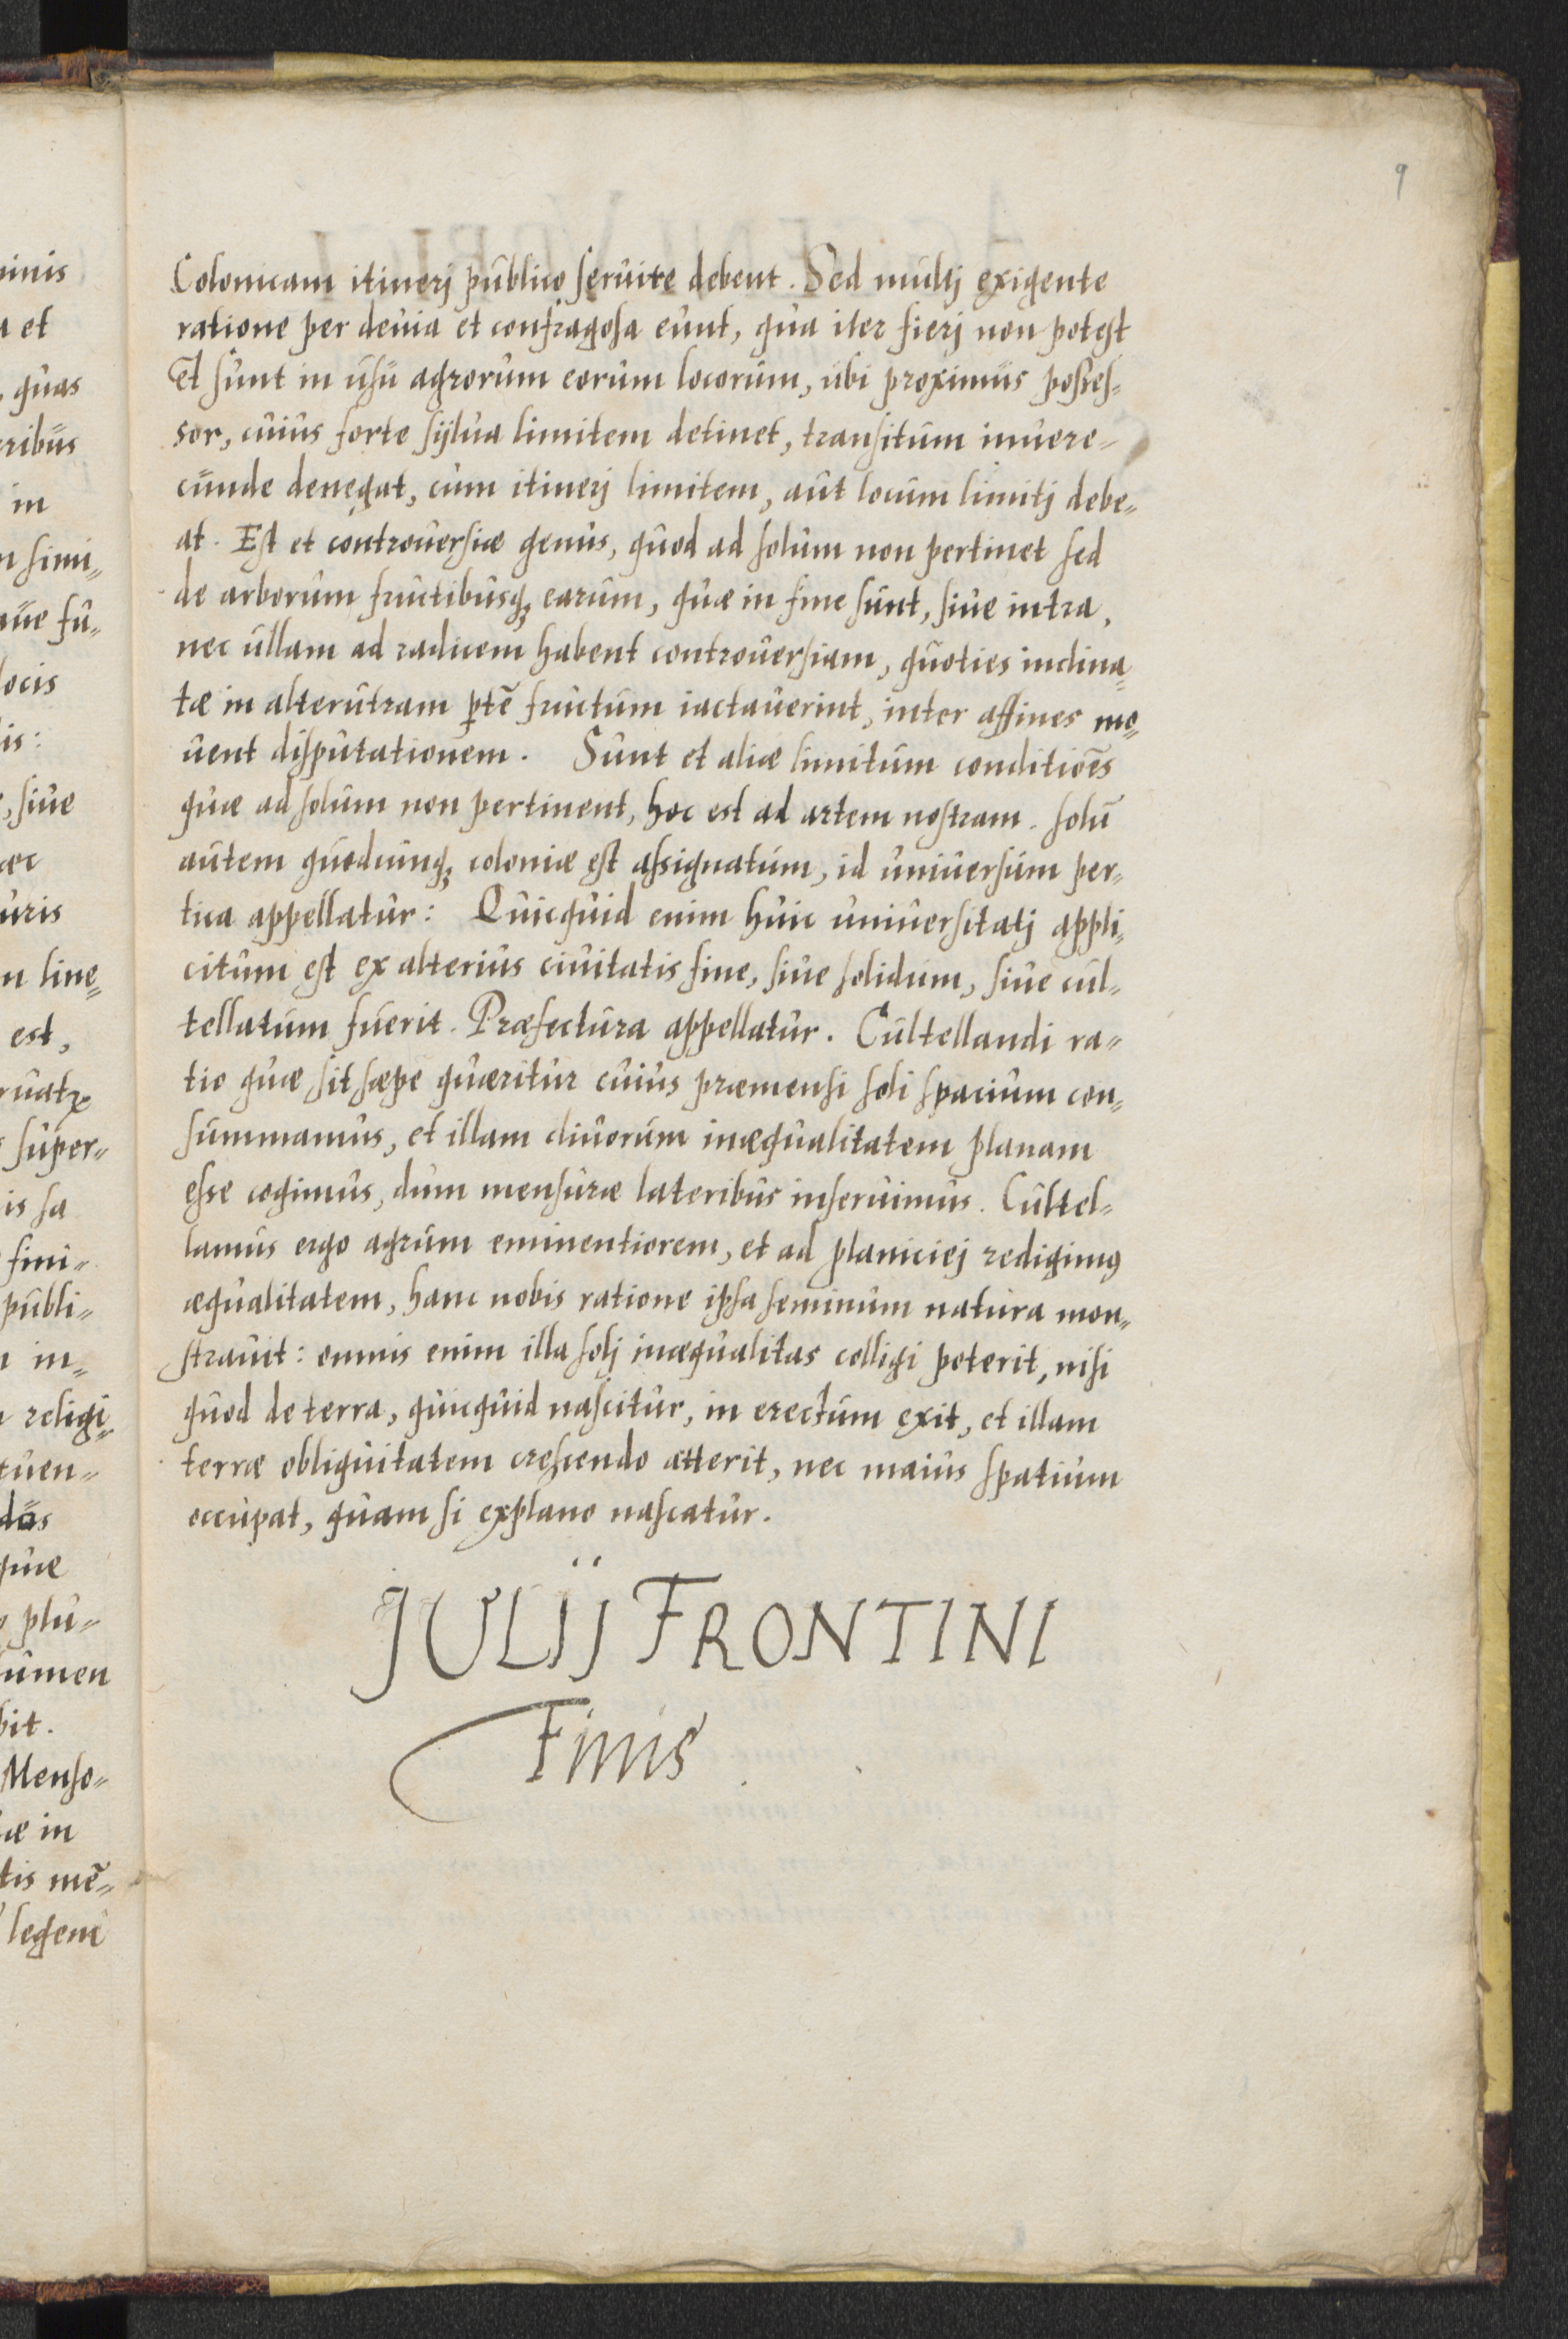 9
Colonicam itinerj publico seruire debent. Sed multj exigente
ratione per deuia et confragosa eunt, qua iter fierj non potest
Et sunt in usu agrorum eorum locorum, ubi proximus posses„
sor, cuius forte sylua limitem detinet, transitum inuere„
cunde denegat, cum itinerj limitem, aut locum limitj debe„
at. Est et controuersiæ genus, quod ad solum non pertinet sed
de arborum fructibusq₃ earum, quæ in fine sunt, siue intra,
nec ullam ad radicem habent controuersiam, quoties inclina„
tæ in alterutram ꝑtē fructum iactauerint, inter affines mo„
uent disputationem. Sunt et aliæ limitum conditiōes
quæ ad solum non pertinent, hoc est ad artem nostram. solū
autem quodcunq₃ coloniæ est assignatum, id uniuersum per„
tica appellatur: Quicquid enim huic uniuersitatj appli„
citum est ex alterius ciuitatis fine, siue solidum, siue cul„
tellatum fuerit. Præfectura appellatur. Cultellandi ra„
tio quæ sit sæpe quæritur cuius præmensi soli spacium con„
summamus, et illam cliuorum inæqualitatem planam
esse cogimus, dum mensuræ lateribus inseruimus. Cultel„
lamus ergo agrum eminentiorem, et ad planiciej redigimꝰ
æqualitatem, hanc nobis ratione ipsa seminum natura mon„
strauit: omnis enim illa solj inæqualitas colligi poterit, nisi
quod de terra, quicquid nascitur, in erectum exit, et illam
terræ obliquitatem crescendo atterit, nec maius spatium
occupat, quam si explano nascatur.
JULIJ FRONTINI
Finis